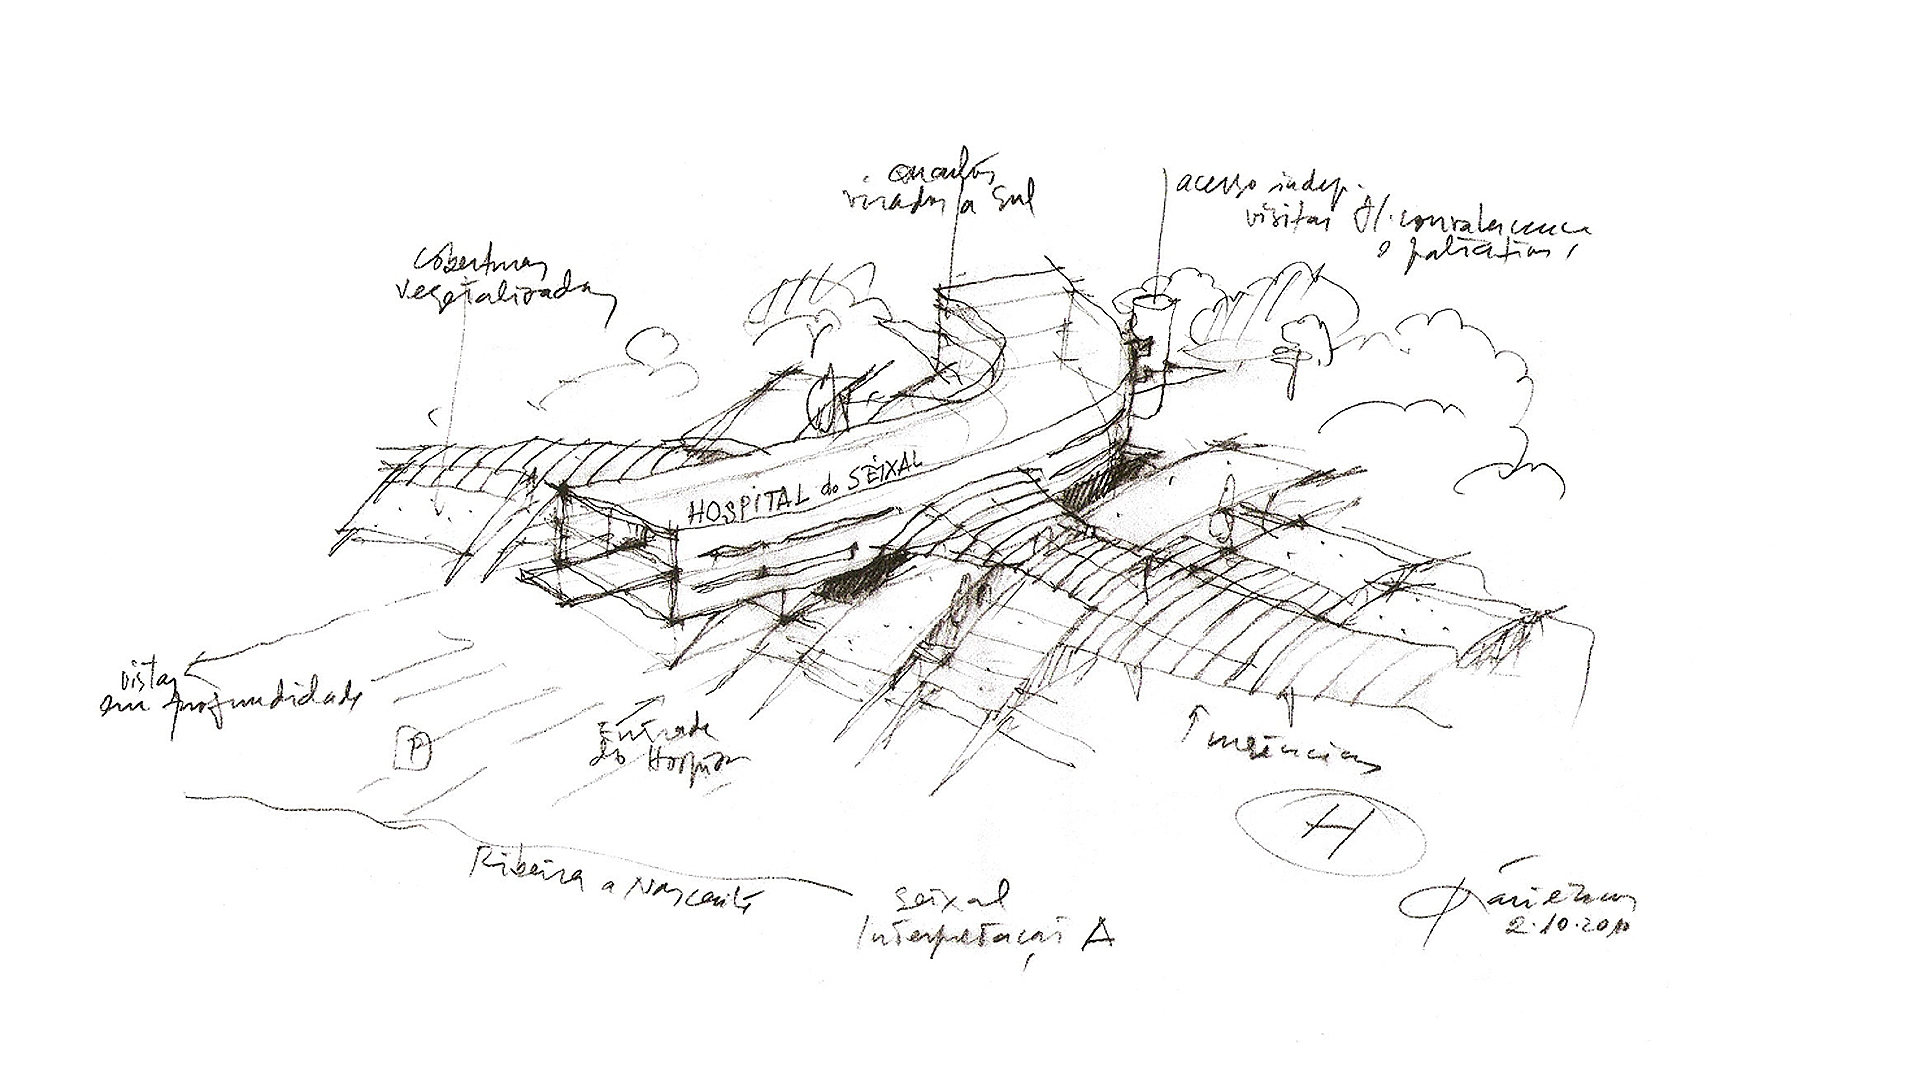 quartos
virados a sul
acesso indep.
visitas p/. convalescença
e paliativos
coberturas
vegetalizadas
HOSPITAL do SEIXAL
vistas
em profundidade
P
Entrada
do Hospital
urgências
H
Ribeira a Nascente
Seixal
Interpretação A
2.10.2010